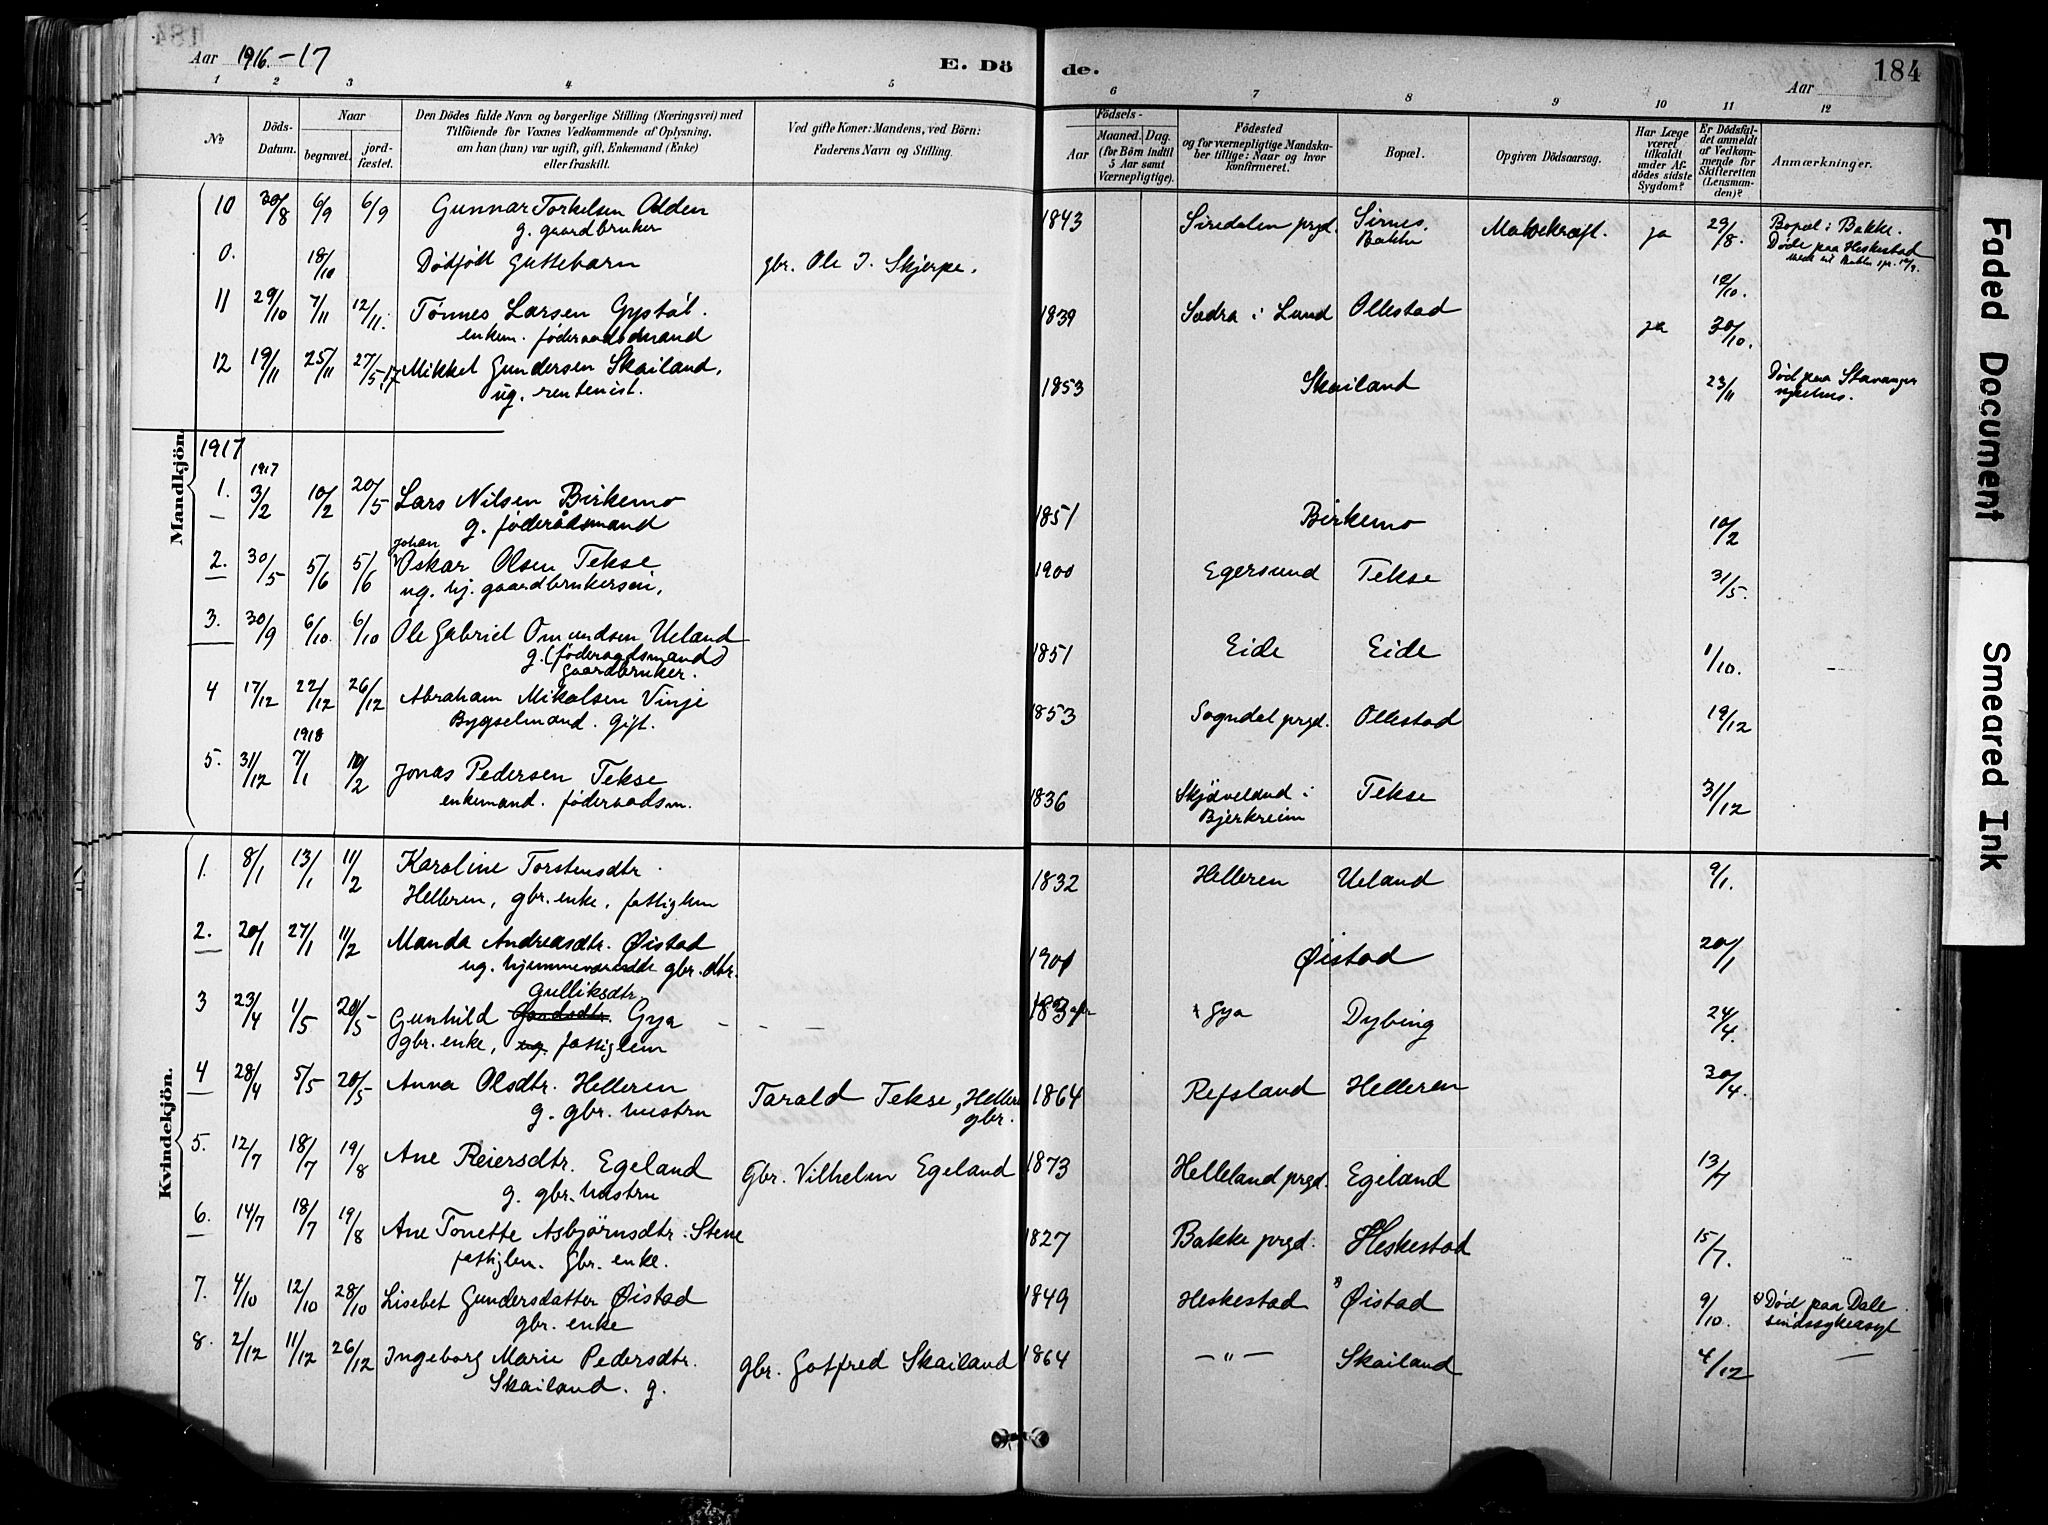 184
Aar 1916.-17
E. Dö
de.
Aar
1 2 3 4 5 6 7 8 9 10 11 12
No.
Döds-Datum.
Naar
begravet.
jord-fæstet.
Den Dödes fulde Navn og borgerlige Stilling (Næringsvei) med
Tilföiende for Voxnes Vedkommende af Oplysning,
om han (hun) var ugift, gift, Enkemand (Enke)
eller fraskilt.
Ved gifte Koner: Mandens, ved Börn:
Faderens Navn og Stilling.
Födsels-
Aar
Maaned. Dag.
(for Börn indtil
5 Aar samt
Værnepligtige).
Födested
og for værnepligtige Mandska-
ber tillige: Naar og hvor
konfirmeret.
Bopæl.
Opgiven Dödsaarsag.
Har Læge
været
tilkaldt
under Af-
dödes sidste
Sygdom?
Er Dödsfal-
det anmeldt
af Vedkom-
mende for
Skifteretten
(Lensman-
den)?
Anmærkninger.
Mandkjön.
10 30/8 6/9 6/9 Gunnar Torkelsen Odden 1843 Siredalen prgd. Sirnes, Mavekræft. ja 29/8. Bopæl i Bakke.
g. gaardbruker Bakke Døde paa Heskestad
0. 18/10 Dødfødt Guttebarn gbr. Ole J. Skjerpe. 19/10.
11 29/10 7/11 12/11. Tønnes Larsen Gystøl. 1839 Sædra i Lund Ollestad ja 30/10.
enkem. føderaadsmand
12 19/11 25/11 27/5 17 Mikkel Gundersen Skailand, 1853 Skailand 23/11 Død paa Stavanger
ug. rentenist. sykehus.
1917
1917
1. 3/2 10/2 20/5 Lars Nilsen Birkemo 1851 Birkemo 10/2
g. føderådsmand
Johan
2. 30/5 5/6 5/6 Oskar Olsen Tekse 1900 Egersund Tekse 31/5.
ug. hj. gaardbrukersøn,
3. 30/9 6/10. 6/10 Ole Gabriel Omundsen Ueland 1851 Eide Eide 1/10.
g. (føderaadsmand)
Gaardbruker.
4 17/12 22/12 26/12 Abraham Mikalsen Vinje 1853 Sogndal prgd. Ollestad 19/12
Bygselmand. Gift.
1918
5. 31/12 7/1 10/2 Jonas Pedersen Tekse 1836 Skjæveland i Tekse 31/12
enkemand. føderaadsm. Bjerkreim
Kvindekjön.
1. 8/1 13/1 11/2 Karoline Torstensdtr. 1832 Helleren Ueland 9/1.
Helleren, gbr. enke, fattiglem
2. 20/1 27/1 11/2 Manda Andreasdtr. Øistad 1901 Øistad 20/1
ug. hjemmeværende gbr. dtr.
Gulliksdtr.
3 23/4 1/5 20/5 Gunhild Gya - - - Gya Dybing 24/4.
gbr. enke, ug. fattiglem
4 28/4 5/5 20/5 Anna Olsdtr. Helleren Tarald Tekse, Heller 1864 Refsland Helleren 30/4.
g. gbr. hustru gbr.
5. 12/7 18/7 19/8 Ane Reiersdtr. Egeland Gbr. Vilhelm Egeland 1873 Helleland prgd. Egeland 13/7
g. gbr. hustru
6. 14/7 18/7 19/8 Ane Tonette Asbjørnsdtr. Stene 1827 Bakke prgd. Heskestad 15/7.
fattiglem. Gbr. enke.
7. 4/10 12/10 28/10 Lisebet Gundersdatter Øistad 1849 Heskestad x) Øistad 9/10. x) Død paa Dale
gbr. enke sindssykeasyl
8. 2/12 11/12 26/12 Ingeborg Marie Pedersdtr. gbr. Gotfred Skailand 1864 -"- Skailand 4/12
Skailand. g.
Faded Document
Smeared Ink